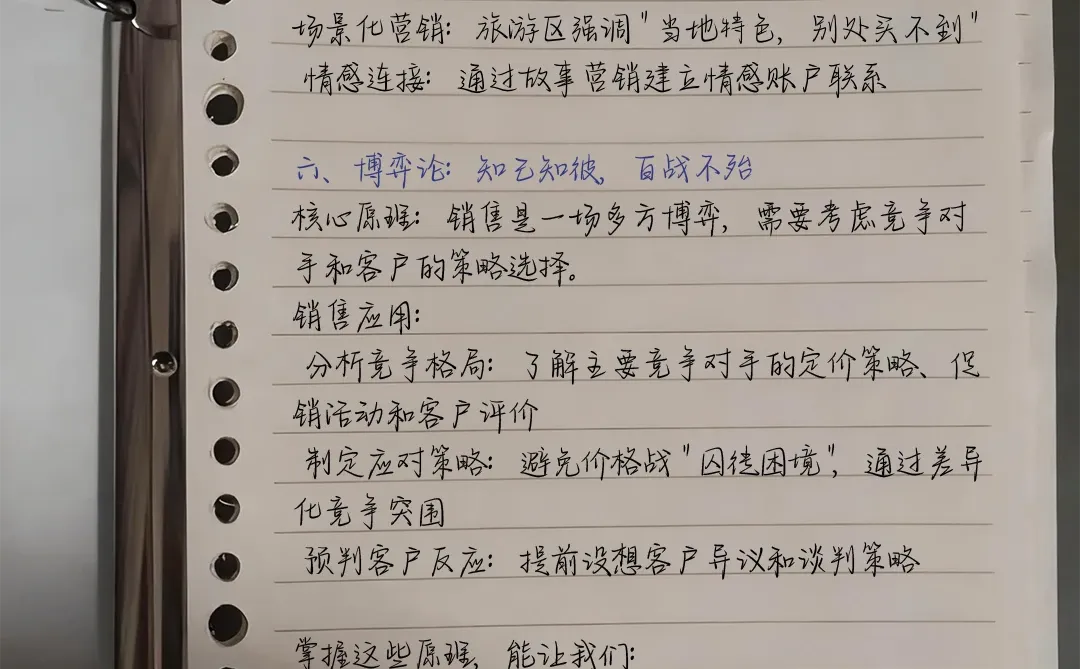 场景化营销：旅游区强调"当地特色，别处买不到"
情感连接：通过故事营销建立情感账户联系
六、博弈论：知己知彼，百战不殆
核心原理：销售是一场多方博弈，需要考虑竞争对
手和客户的策略选择。
销售应用：
分析竞争格局：了解主要竞争对手的定价策略、促
销活动和客户评价
制定应对策略：避免价格战"囚徒困境"，通过差异
化竞争突围
预判客户反应：提前设想客户异议和谈判策略
掌握这些原理，能让我们：